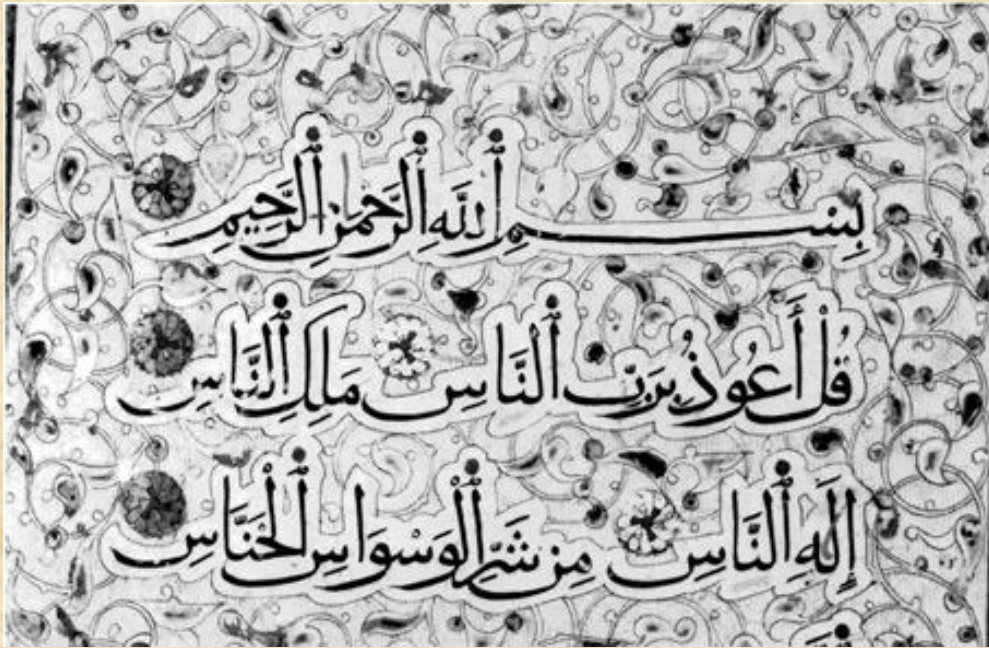 بِسْمِ ٱللَّهِ ٱلرَّحْمَنِ ٱلرَّحِيمِ
قُلْ أَعُوذُ بِرَبِّ ٱلنَّاسِ مَلِكِ ٱلنَّاسِ
إِلَهِ ٱلنَّاسِ مِن شَرِّ ٱلْوَسْوَاسِ ٱلْخَنَّاسِ